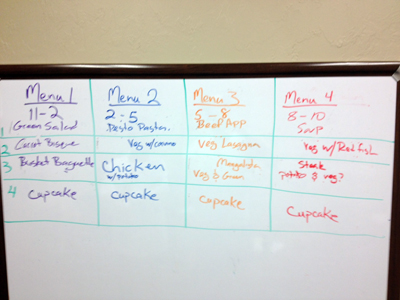 Menu 1 Menu 2 Menu 3 Menu 4
11-2 2-5 5-8 8-10
1 Green Salad Pesto Pasta. Beef App Soup
2 Veg Lasagna Veg w/ Red fish
3 Basket Baguette Chicken Steak
w/ potato Veg & Green potato & veg?
4 Cupcake Cupcake Cupcake Cupcake